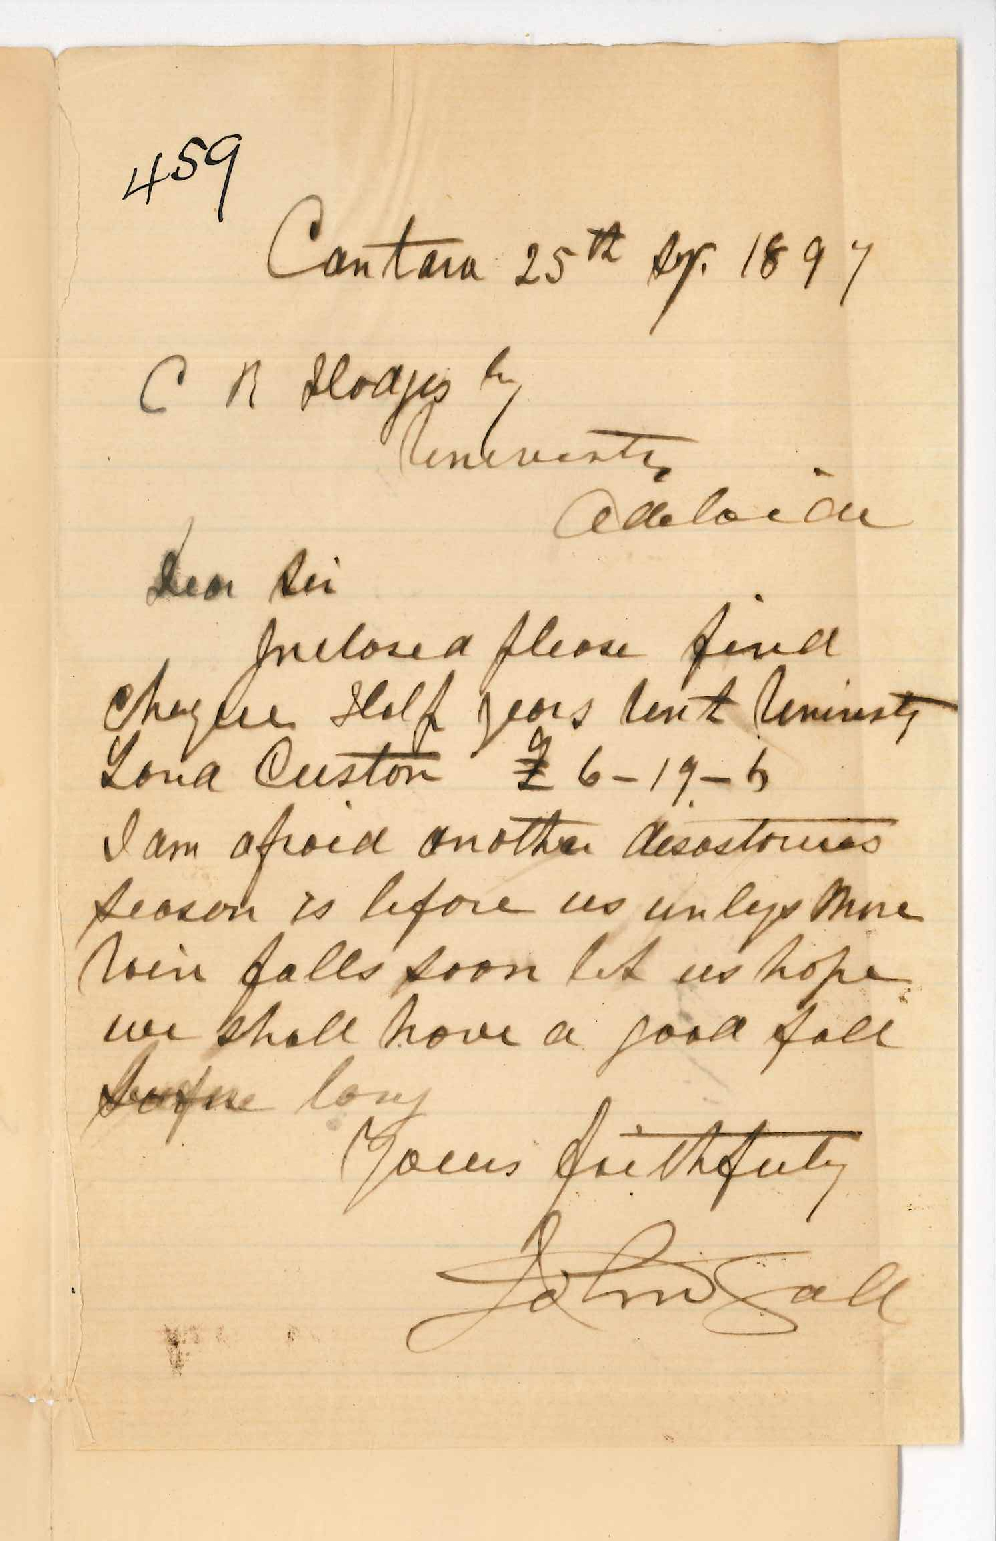 459
Cantara 25th Sep. 1897
C R Hodges Esq
University
Adelaide
Dear Sir
Inclosed please find
Cheque Half years Rent University
Land Custon £ 6-19-6
I am afraid another disastorous
season is before us unless More
Rain falls soon let us hope
we shall have a good fall
before long
Yours faithfully
John Gall